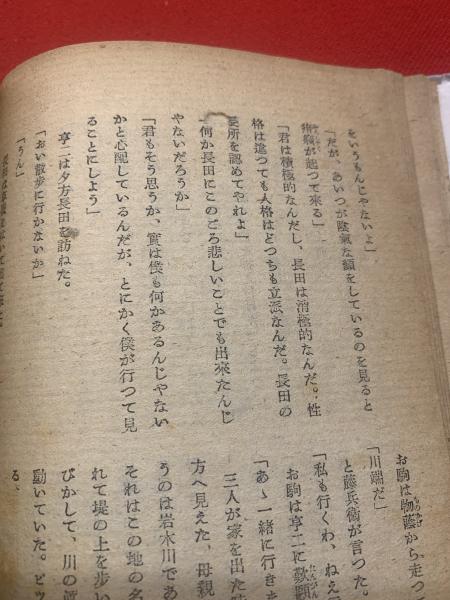 をいうもんじやないよ」
「だが、あいつが陰氣な顔をしているのを見ると
癇癪が起つて来る」
「君は積極的なんだし、長田は消極的なんだ。性
格は違つても人格はどつちも立派なんだ。長田の
長所を認めてやれよ」
「何か長田にこのごろ悲しいことでも出來たんじ
やないだろうか」
「君もそう思うか、實は僕も何かあるんじやない
かと心配しているんだが、とにかく僕が行つて見
ることにしよう」
享二は夕方長田を訪ねた。
「おい散歩に行かないか」
「うん」
お駒は物蔭から、走つ
「川端だ」
と藤兵衞が言つた。
「私も行くわ、ねえ
お駒は享二に歎願
「あゝ一緒に行きた
三人が家を出た
方へ見えた、母親
うのは岩木川であ
それはこの地の名
れて堤の上を歩い
びかして、川の
動いていた。ビツ
る。